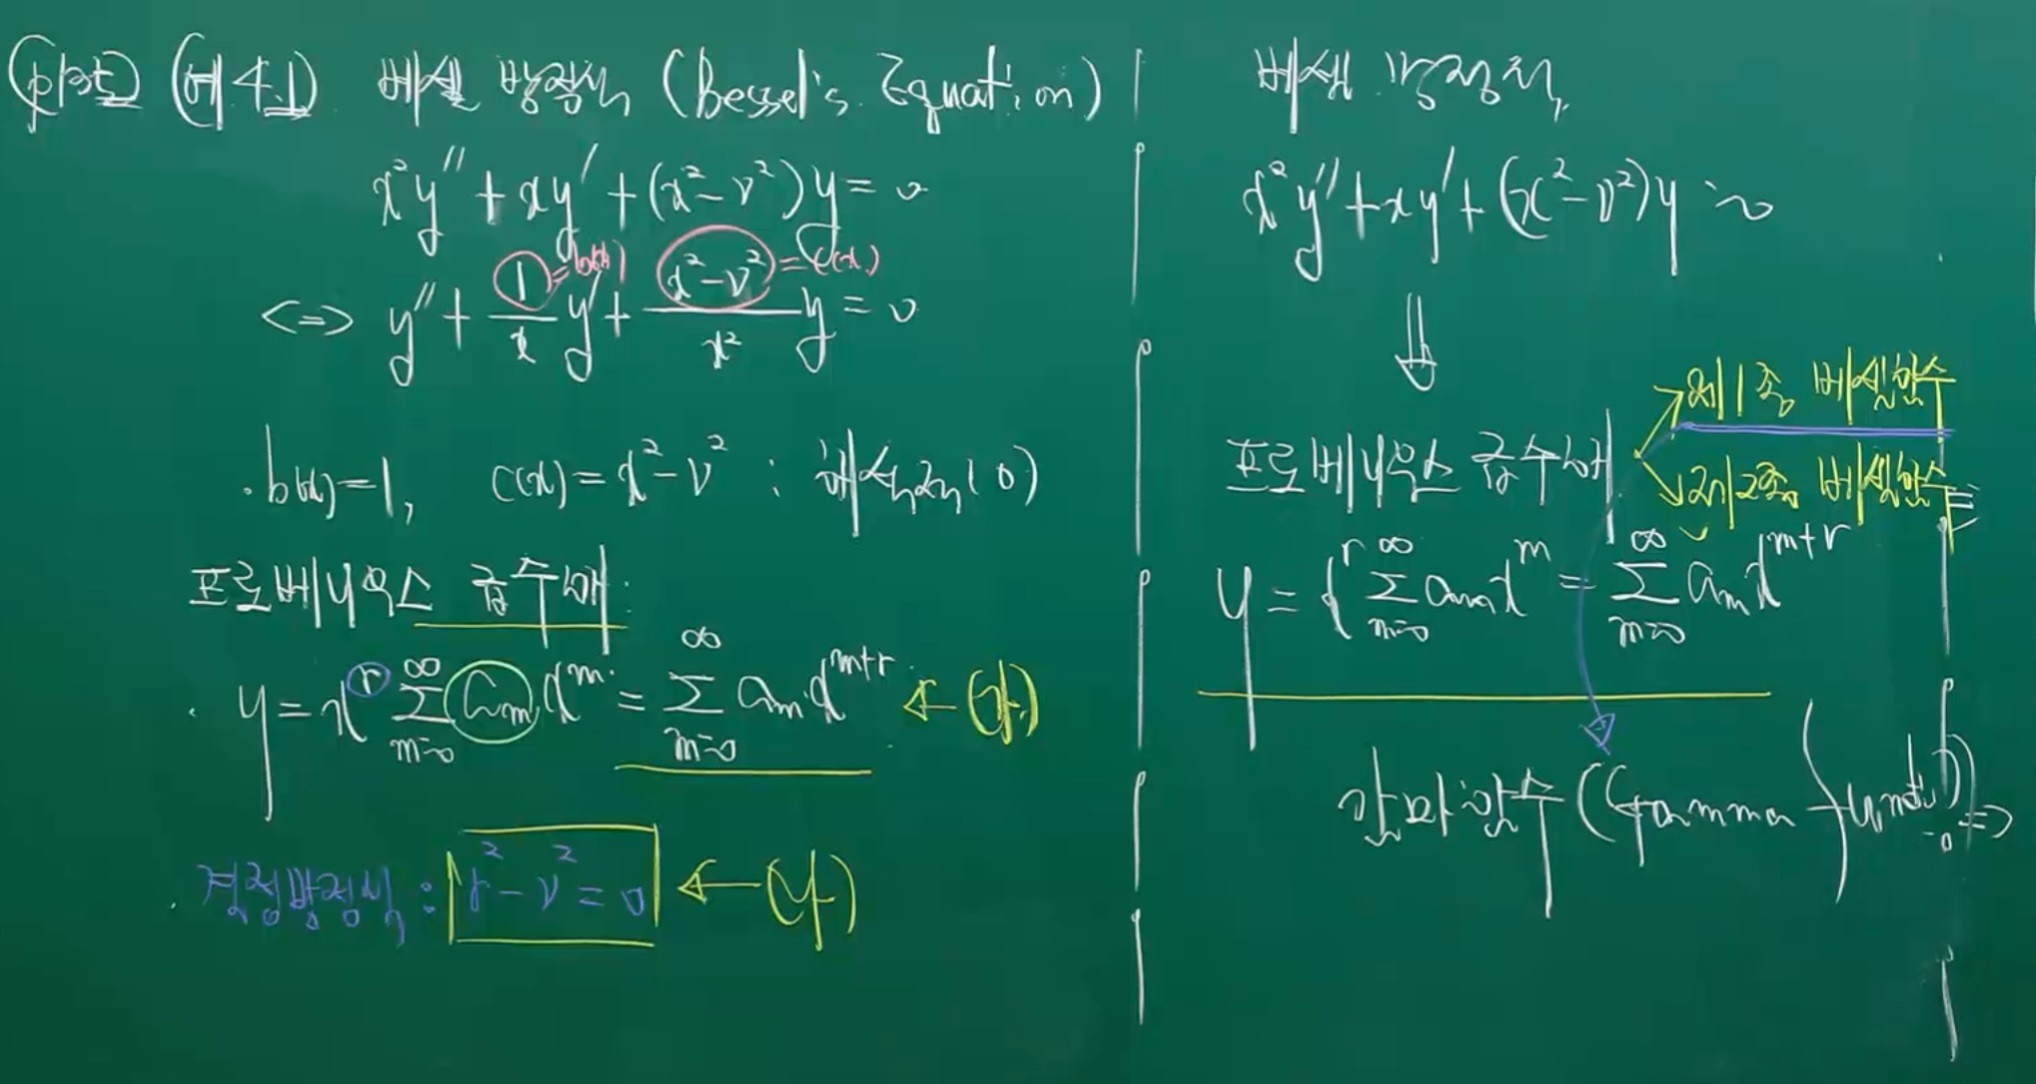 (예 4.1) 베셀 방정식 (Bessel's Equation)
x²y″ + xy′ + (x²-ν²)y = 0
<=> y″ + 1/x y′ + (x²-ν²)/x² y = 0
1 = b(x)
x²-ν² = c(x)
· b(x)=1, c(x)=x²-ν² : 해석적(0)
프로베니우스 급수해
· y = x^r ∑_{m=0}^∞ a_m x^m = ∑_{m=0}^∞ a_m x^{m+r} ←
· 결정방정식 : r²-ν²=0 ←
베셀 방정식
x²y″+xy′+(x²-ν²)y=0
⇓
프로베니우스 급수해
제1종 베셀함수
제2종 베셀함수
y = x^r ∑_{m=0}^∞ a_m x^m = ∑_{m=0}^∞ a_m x^{m+r}
감마함수 (Gamma